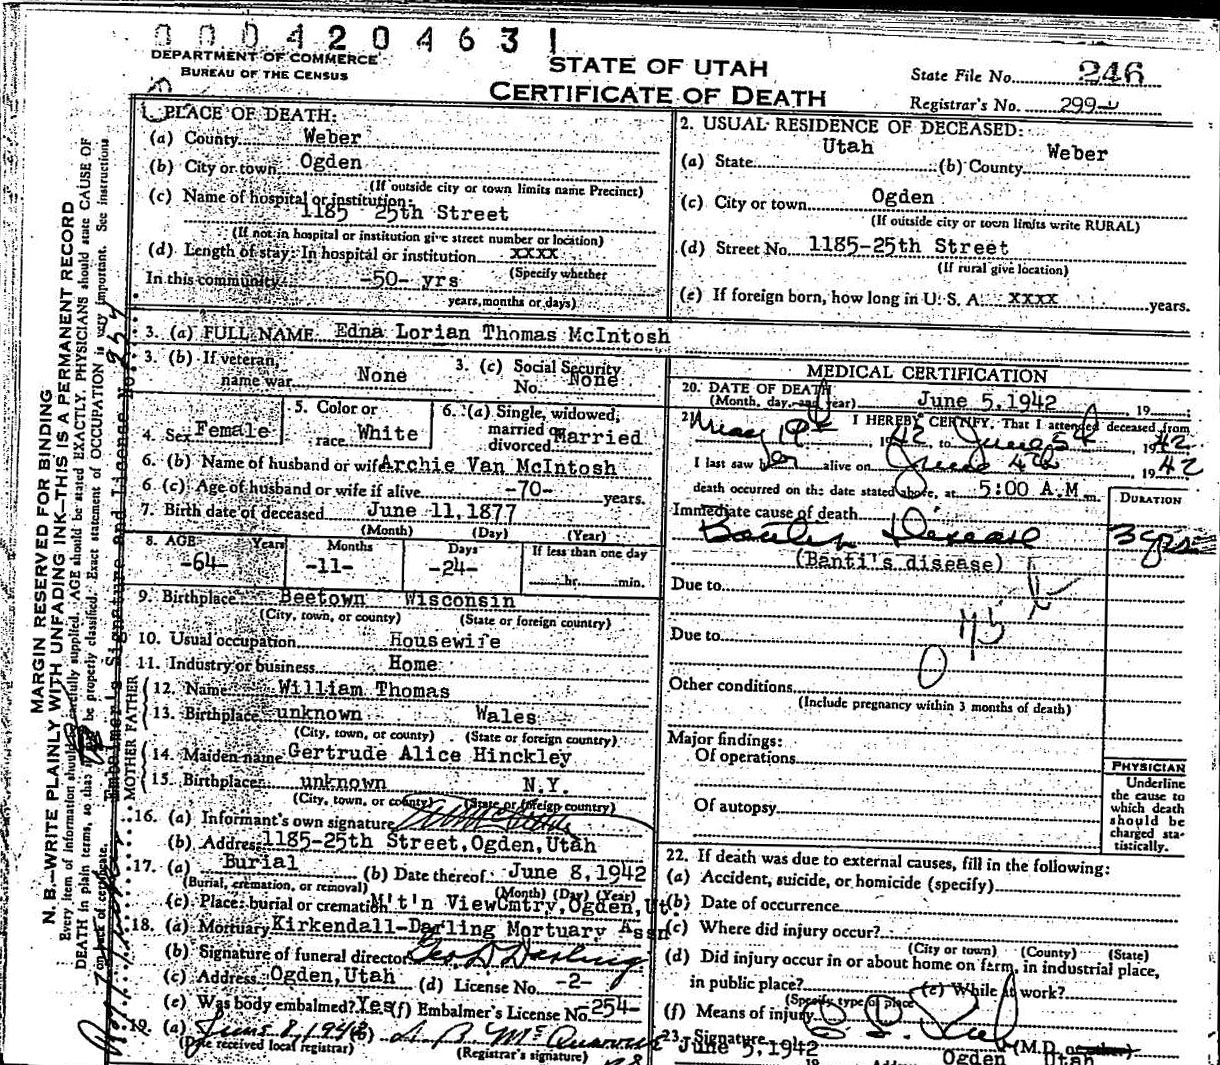 0 0 0 4 2 0 4 6 3 1
DEPARTMENT OF COMMERCE
BUREAU OF THE CENSUS
STATE OF UTAH
CERTIFICATE OF DEATH
State File No. 246
Registrar's No. 299
MARGIN RESERVED FOR BINDING
N. B.—WRITE PLAINLY WITH UNFADING INK—THIS IS A PERMANENT RECORD
Every item of information should be carefully supplied. AGE should be stated EXACTLY. PHYSICIANS should state CAUSE OF
DEATH in plain terms, so that it may be properly classified. Exact statement of OCCUPATION is very important. See instructions
on back of certificate.
Embalmer's Signature and License No. 254
1. PLACE OF DEATH:
(a) County Weber
(b) City or town Ogden
(If outside city or town limits name Precinct)
(c) Name of hospital or institution:
1185 25th Street
(If not in hospital or institution give street number or location)
(d) Length of stay: In hospital or institution xxxx
(Specify whether
In this community -50- yrs
years, months or days)
2. USUAL RESIDENCE OF DECEASED:
(a) State Utah (b) County Weber
(c) City or town Ogden
(If outside city or town limits write RURAL)
(d) Street No. 1185-25th Street
(If rural give location)
(e) If foreign born, how long in U. S. A. xxxx years.
3. (a) FULL NAME Edna Lorian Thomas McIntosh
3. (b) If veteran, name war None
3. (c) Social Security No. None
4. Sex Female
5. Color or race White
6. (a) Single, widowed, married or divorced Married
6. (b) Name of husband or wife Archie Van McIntosh
6 (c) Age of husband or wife if alive -70- years.
7. Birth date of deceased June 11, 1877
(Month) (Day) (Year)
8. AGE Years Months Days If less than one day
-64- -11- -24- hr. min.
9. Birthplace Beetown Wisconsin
(City, town, or county) (State or foreign country)
10. Usual occupation Housewife
11. Industry or business Home
FATHER
12. Name William Thomas
13. Birthplace unknown Wales
(City, town, or county) (State or foreign country)
MOTHER
14. Maiden name Gertrude Alice Hinckley
15. Birthplace unknown N.Y.
(City, town, or county) (State or foreign country)
16. (a) Informant's own signature
(b) Address 1185-25th Street, Ogden, Utah
17. (a) Burial (b) Date thereof June 8, 1942
(Burial, cremation, or removal) (Month) (Day) (Year)
(c) Place: burial or cremation M't'n View Cmtry, Ogden, Ut.
18. (a) Mortuary Kirkendall-Darling Mortuary Assn
(b) Signature of funeral director Geo D Darling
(c) Address Ogden, Utah (d) License No. -2-
(e) Was body embalmed? Yes (f) Embalmer's License No. 254-
19. (a)
(Date received local registrar) (Registrar's signature)
MEDICAL CERTIFICATION
20. DATE OF DEATH
(Month, day, and year) June 5, 1942, 19
21. I HEREBY CERTIFY, That I attended deceased from
May 19th, 1942 to June 5th, 1942
I last saw her alive on June 4th 1942
death occurred on the date stated above, at 5:00 A.M. m.
DURATION
Immediate cause of death
Bantis Disease 3 yrs
(Banti's disease)
Due to
Due to
Other conditions
(Include pregnancy within 3 months of death)
Major findings:
Of operations
Of autopsy
PHYSICIAN
Underline
the cause to
which death
should be
charged sta-
tistically.
22. If death was due to external causes, fill in the following:
(a) Accident, suicide, or homicide (specify)
(b) Date of occurrence
(c) Where did injury occur?
(City or town) (County) (State)
(d) Did injury occur in or about home on farm, in industrial place,
in public place? (e) While at work?
(Specify type of place
(f) Means of injury
23. Signature (M.D. or other)
June 5, 1942 Ogden Utah